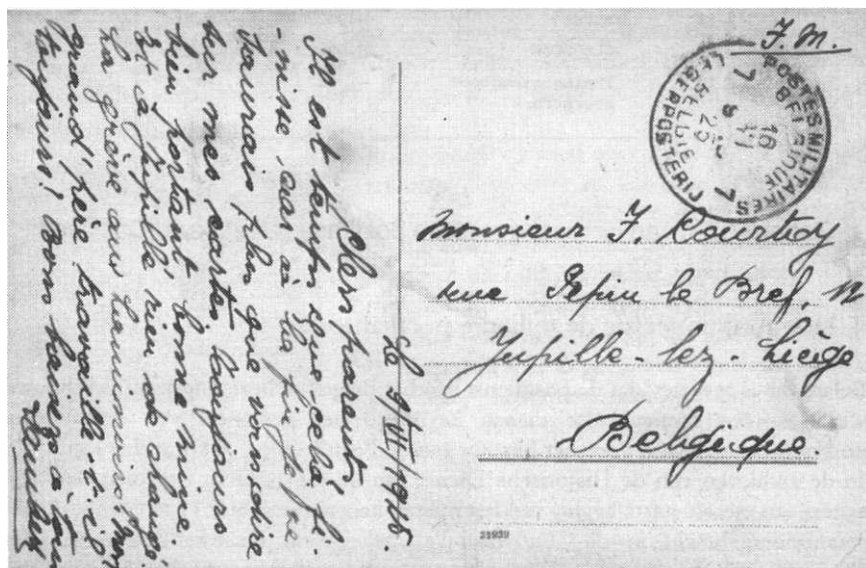 F. M.
POSTES MILITAIRES
BELGIQUE
16
9 XII
25
BELGIE
LEGERPOSTERIJ
7
7
Monsieur J. Courtoy
rue Pepin le Bref, 12
Jupille-lez-Liège
Belgique.
Le 9/XII/1925.
Chers parents,
Il est temps que cela fi-
-nisse, car à la fin je ne
saurais plus que vous dire
sur mes cartes. Toujours
bien portant, bonne mine
Et à Jupille rien de changé,
La grève aux
grand'père travaille-t-il
toujours? Bons baisers à tous
31939